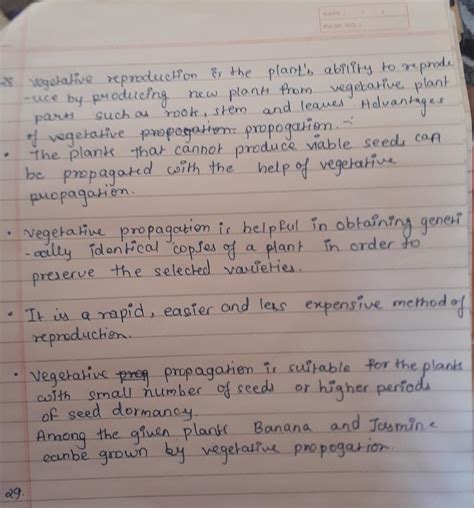 DATE: / /
PAGE NO.:
28 vegetative reproduction is the plant's ability to reprod
-uce by producing new plants from vegetative plant
parts such as roots, stem and leaves. Advantages
of vegetative propogation propogation. :-
• The plants that cannot produce viable seeds can
be propagated with the help of vegetative
propagation.
• vegetative propagation is helpful in obtaining geneti
-cally identical copies of a plant in order to
preserve the selected varieties.
• It is a rapid, easier and less expensive method of
reproduction.
• vegetative prog propagation is suitable for the plants
with small number of seeds or higher periods
of seed dormancy.
Among the given plants Banana and Jasmine
canbe grown by vegetative propogation.
29.